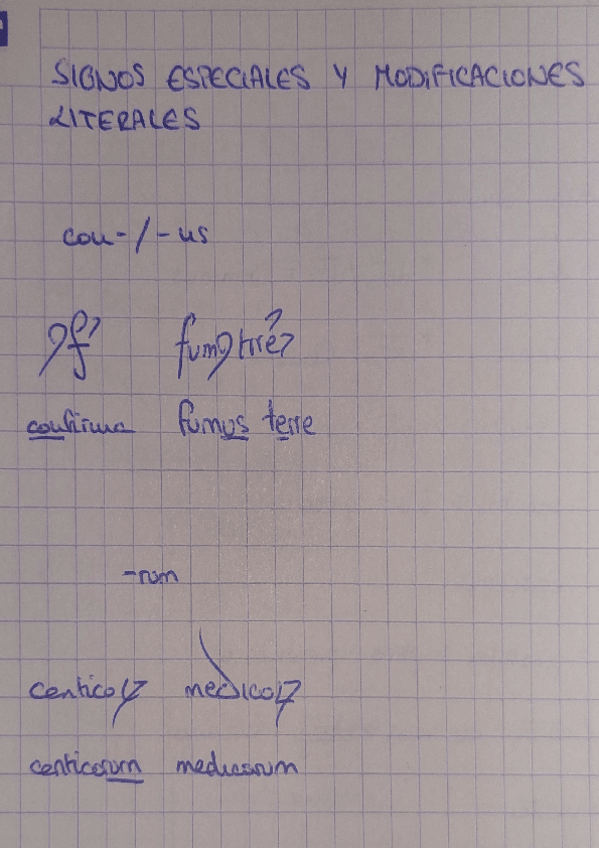 SIGNOS ESPECIALES Y MODIFICACIONES
LITERALES
con-/-us
ꝯf fumꝯ trre
confirma fumus terre
-rum
centicoꝝ medicoꝝ
centicorum medicorum